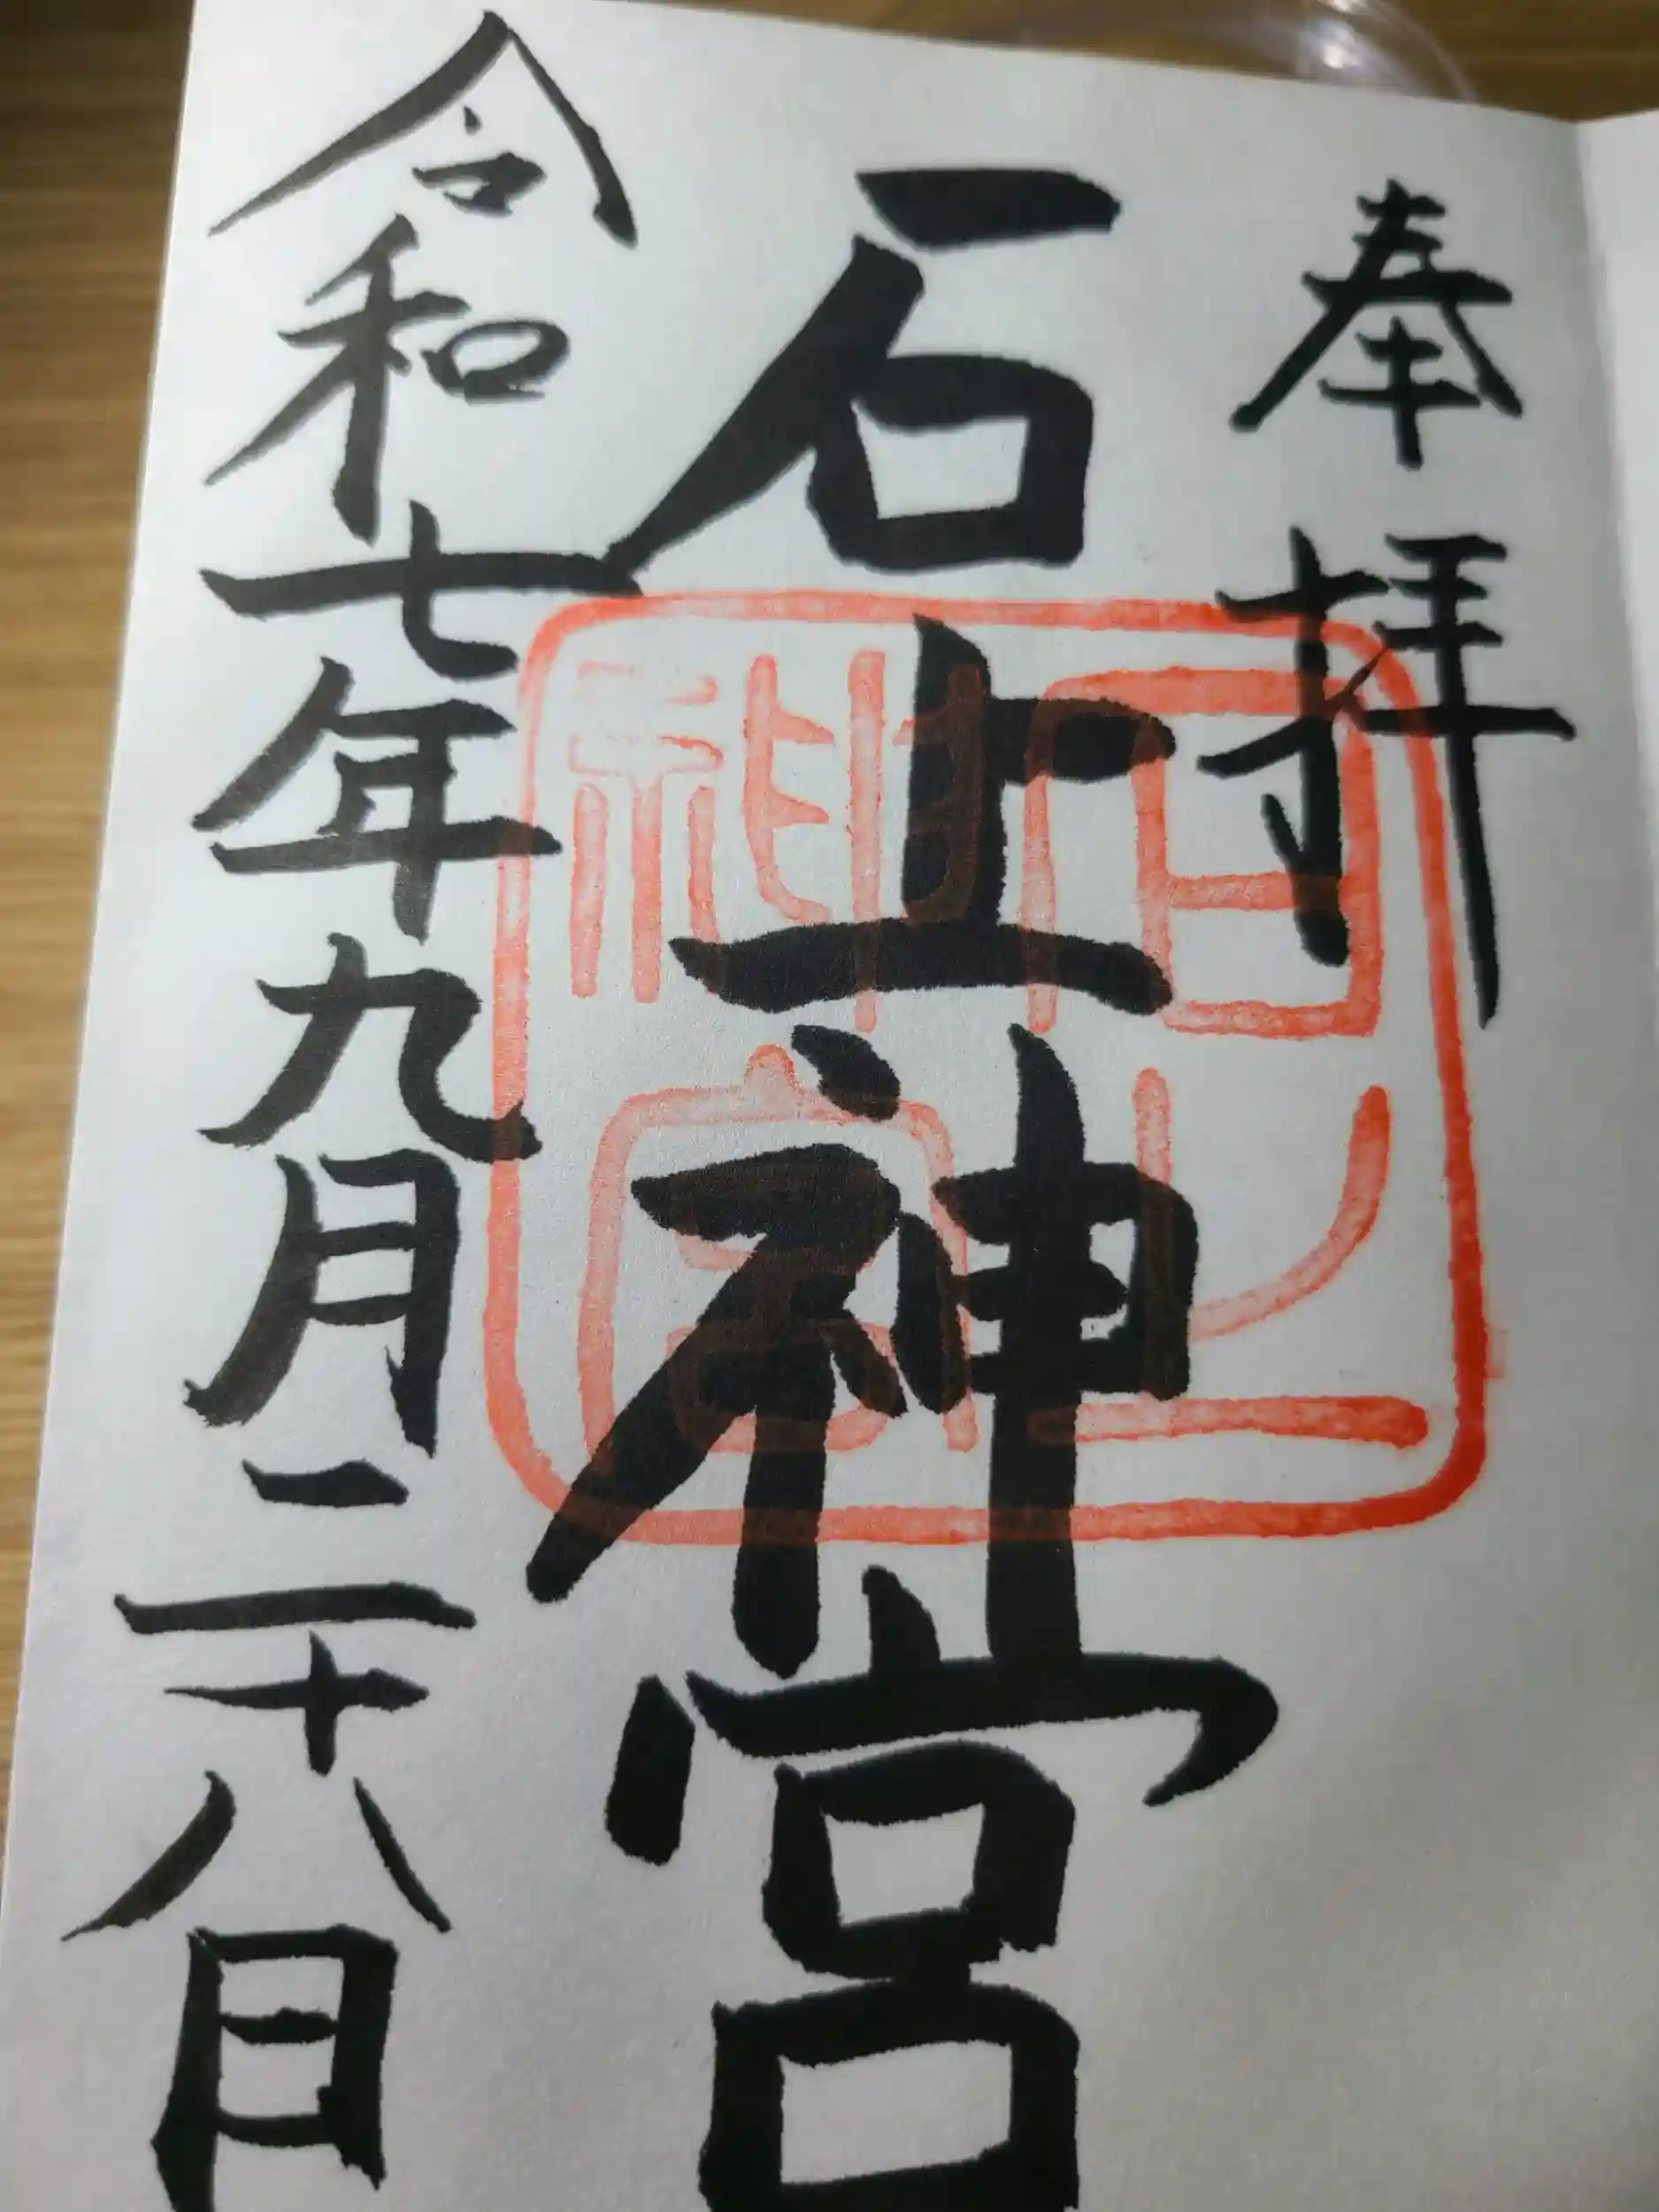 奉拝
石上神宮
令和七年九月二十八日
石上神宮